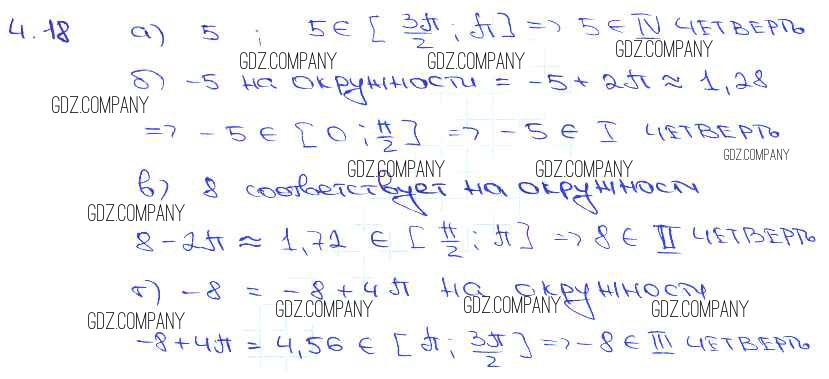 4.18 а) 5 ; 5 ∈ [3π/2 ; π] => 5 ∈ IV ЧЕТВЕРТЬ
GDZ.COMPANY GDZ.COMPANY GDZ.COMPANY
б) -5 на окружности = -5 + 2π ≈ 1,28
GDZ.COMPANY
=> -5 ∈ [0 ; π/2] => -5 ∈ I ЧЕТВЕРТЬ
GDZ.COMPANY GDZ.COMPANY GDZ.COMPANY
в) 8 соответствует на окружности
GDZ.COMPANY
8 - 2π ≈ 1,72 ∈ [π/2 ; π] => 8 ∈ II ЧЕТВЕРТЬ
г) -8 = -8 + 4π на окружности
GDZ.COMPANY GDZ.COMPANY GDZ.COMPANY GDZ.COMPANY
-8 + 4π = 4,56 ∈ [π ; 3π/2] => -8 ∈ III ЧЕТВЕРТЬ